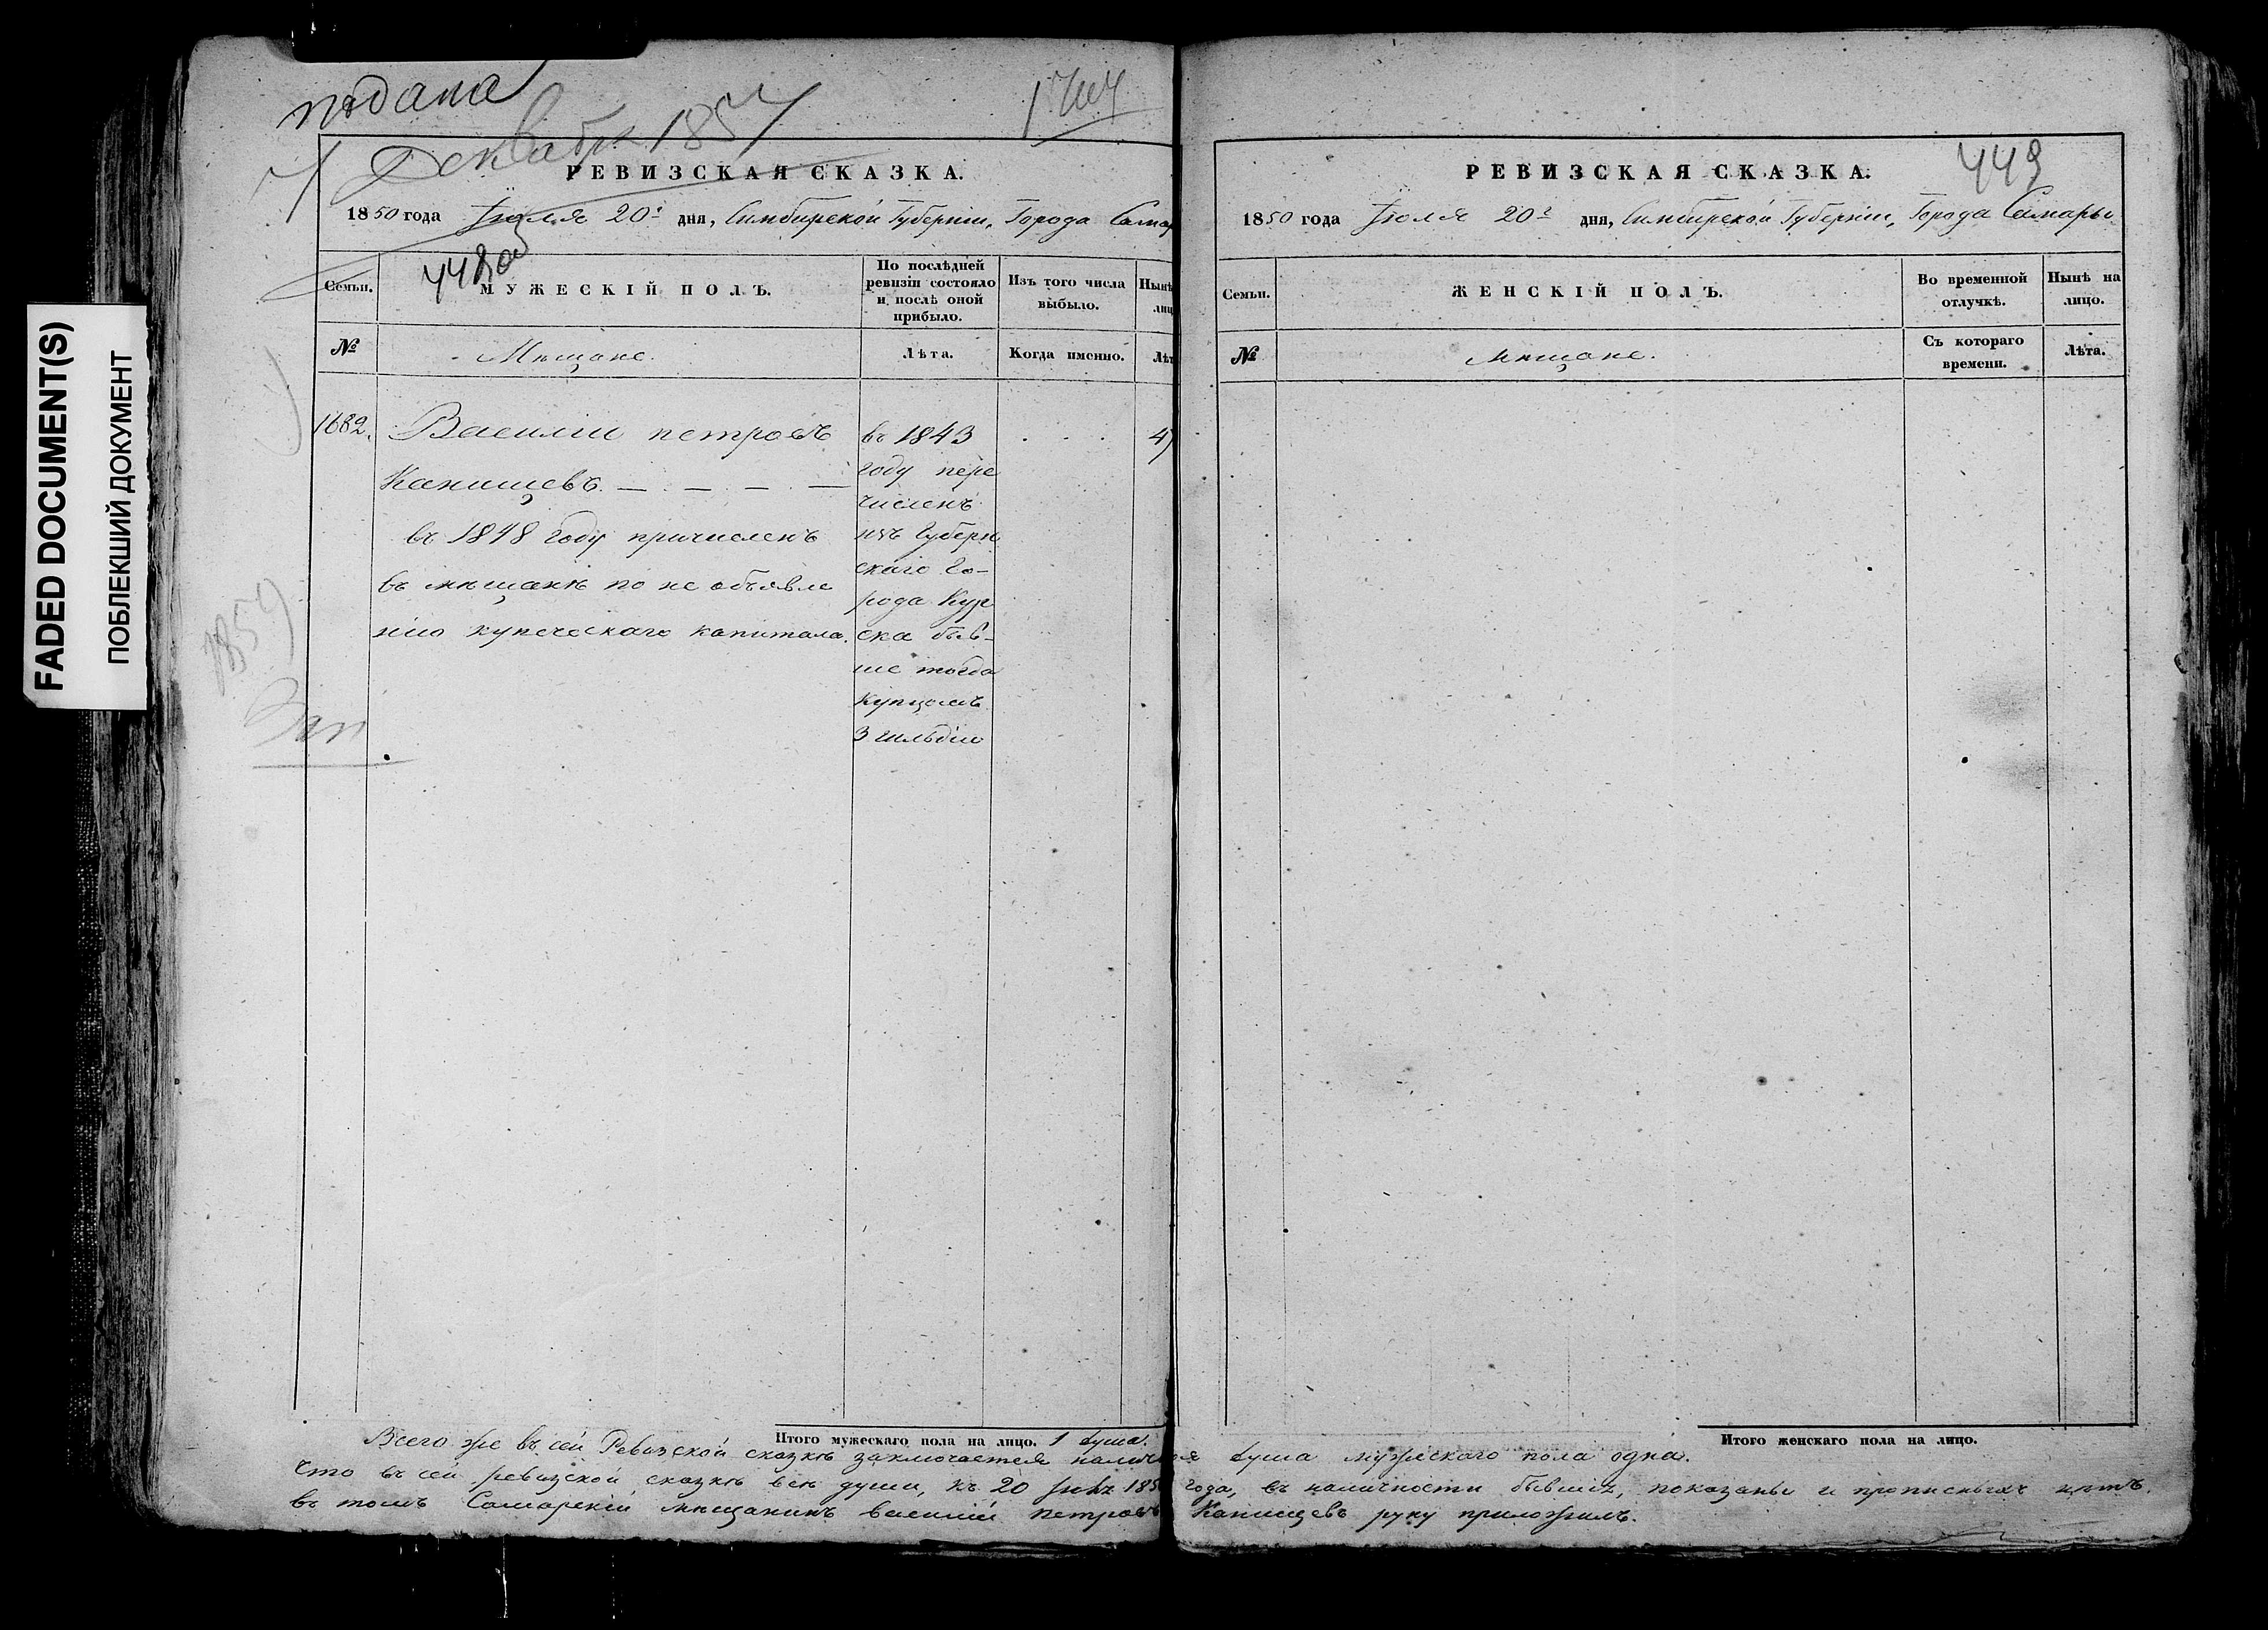 FADED DOCUMENT(S)
ПОБЛЕКШИЙ ДОКУМЕНТ
подана
7 Декабря 1857
РЕВИЗСКАЯ СКАЗКА.
1850 года Іюля 20 дня, Симбирской Губерніи, Города Самар
448 об
Семьи.
МУЖЕСКІЙ ПОЛЪ.
По послѣдней ревизіи состояло и послѣ оной прибыло.
Изъ того числа выбыло.
Нынѣ лиц
№
Мѣщане.
Лѣта.
Когда именно.
Лѣт
1682.
Василій петровъ
Канищевъ.
въ 1848 году причисленъ
въ мѣщане по не объявле
нію купеческаго капитала.
въ 1843
году пере
численъ
изъ Губерн
скаго Го-
рода Кур
ска быв-
ше тогда
купцомъ
3 гильдіи
47
1857
Итого мужескаго пола на лицо. 1 душа.
РЕВИЗСКАЯ СКАЗКА.
449
1850 года Іюля 20 дня, Симбирской Губерніи, Города Самары
Семьи.
ЖЕНСКІЙ ПОЛЪ.
Во временной отлучкѣ.
Нынѣ на лицо.
№
Мѣщане.
Съ котораго времени.
Лѣта.
Итого женскаго пола на лицо.
Всего же въ сей Ревизской сказкѣ заключается наличная душа мужескаго пола одна.
Что въ сей ревизской сказкѣ все души, къ 20 1850 года, въ наличности бывшія, показаны и прописныхъ нѣтъ.
въ томъ Самарскій мѣщанинъ василій петровъ Канищевъ руку приложилъ.